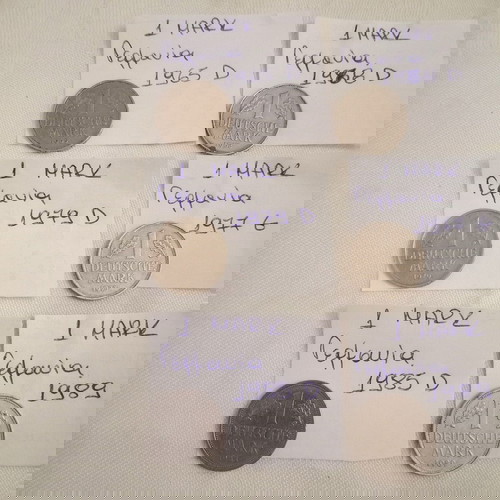 1 MARK
Γερμανία
1965 D
1
DEUTSCHE
MARK
1 MARK
Γερμανία
D
1
DEUTSCHE
MARK
1 MARK
Γερμανία
1979 D
1
DEUTSCHE
MARK
1 MARK
Γερμανία
1977 G
1
DEUTSCHE
MARK
1 MARK
Γερμανία
1989
1
DEUTSCHE
MARK
1 MARK
Γερμανία
1985 D
1
DEUTSCHE
MARK